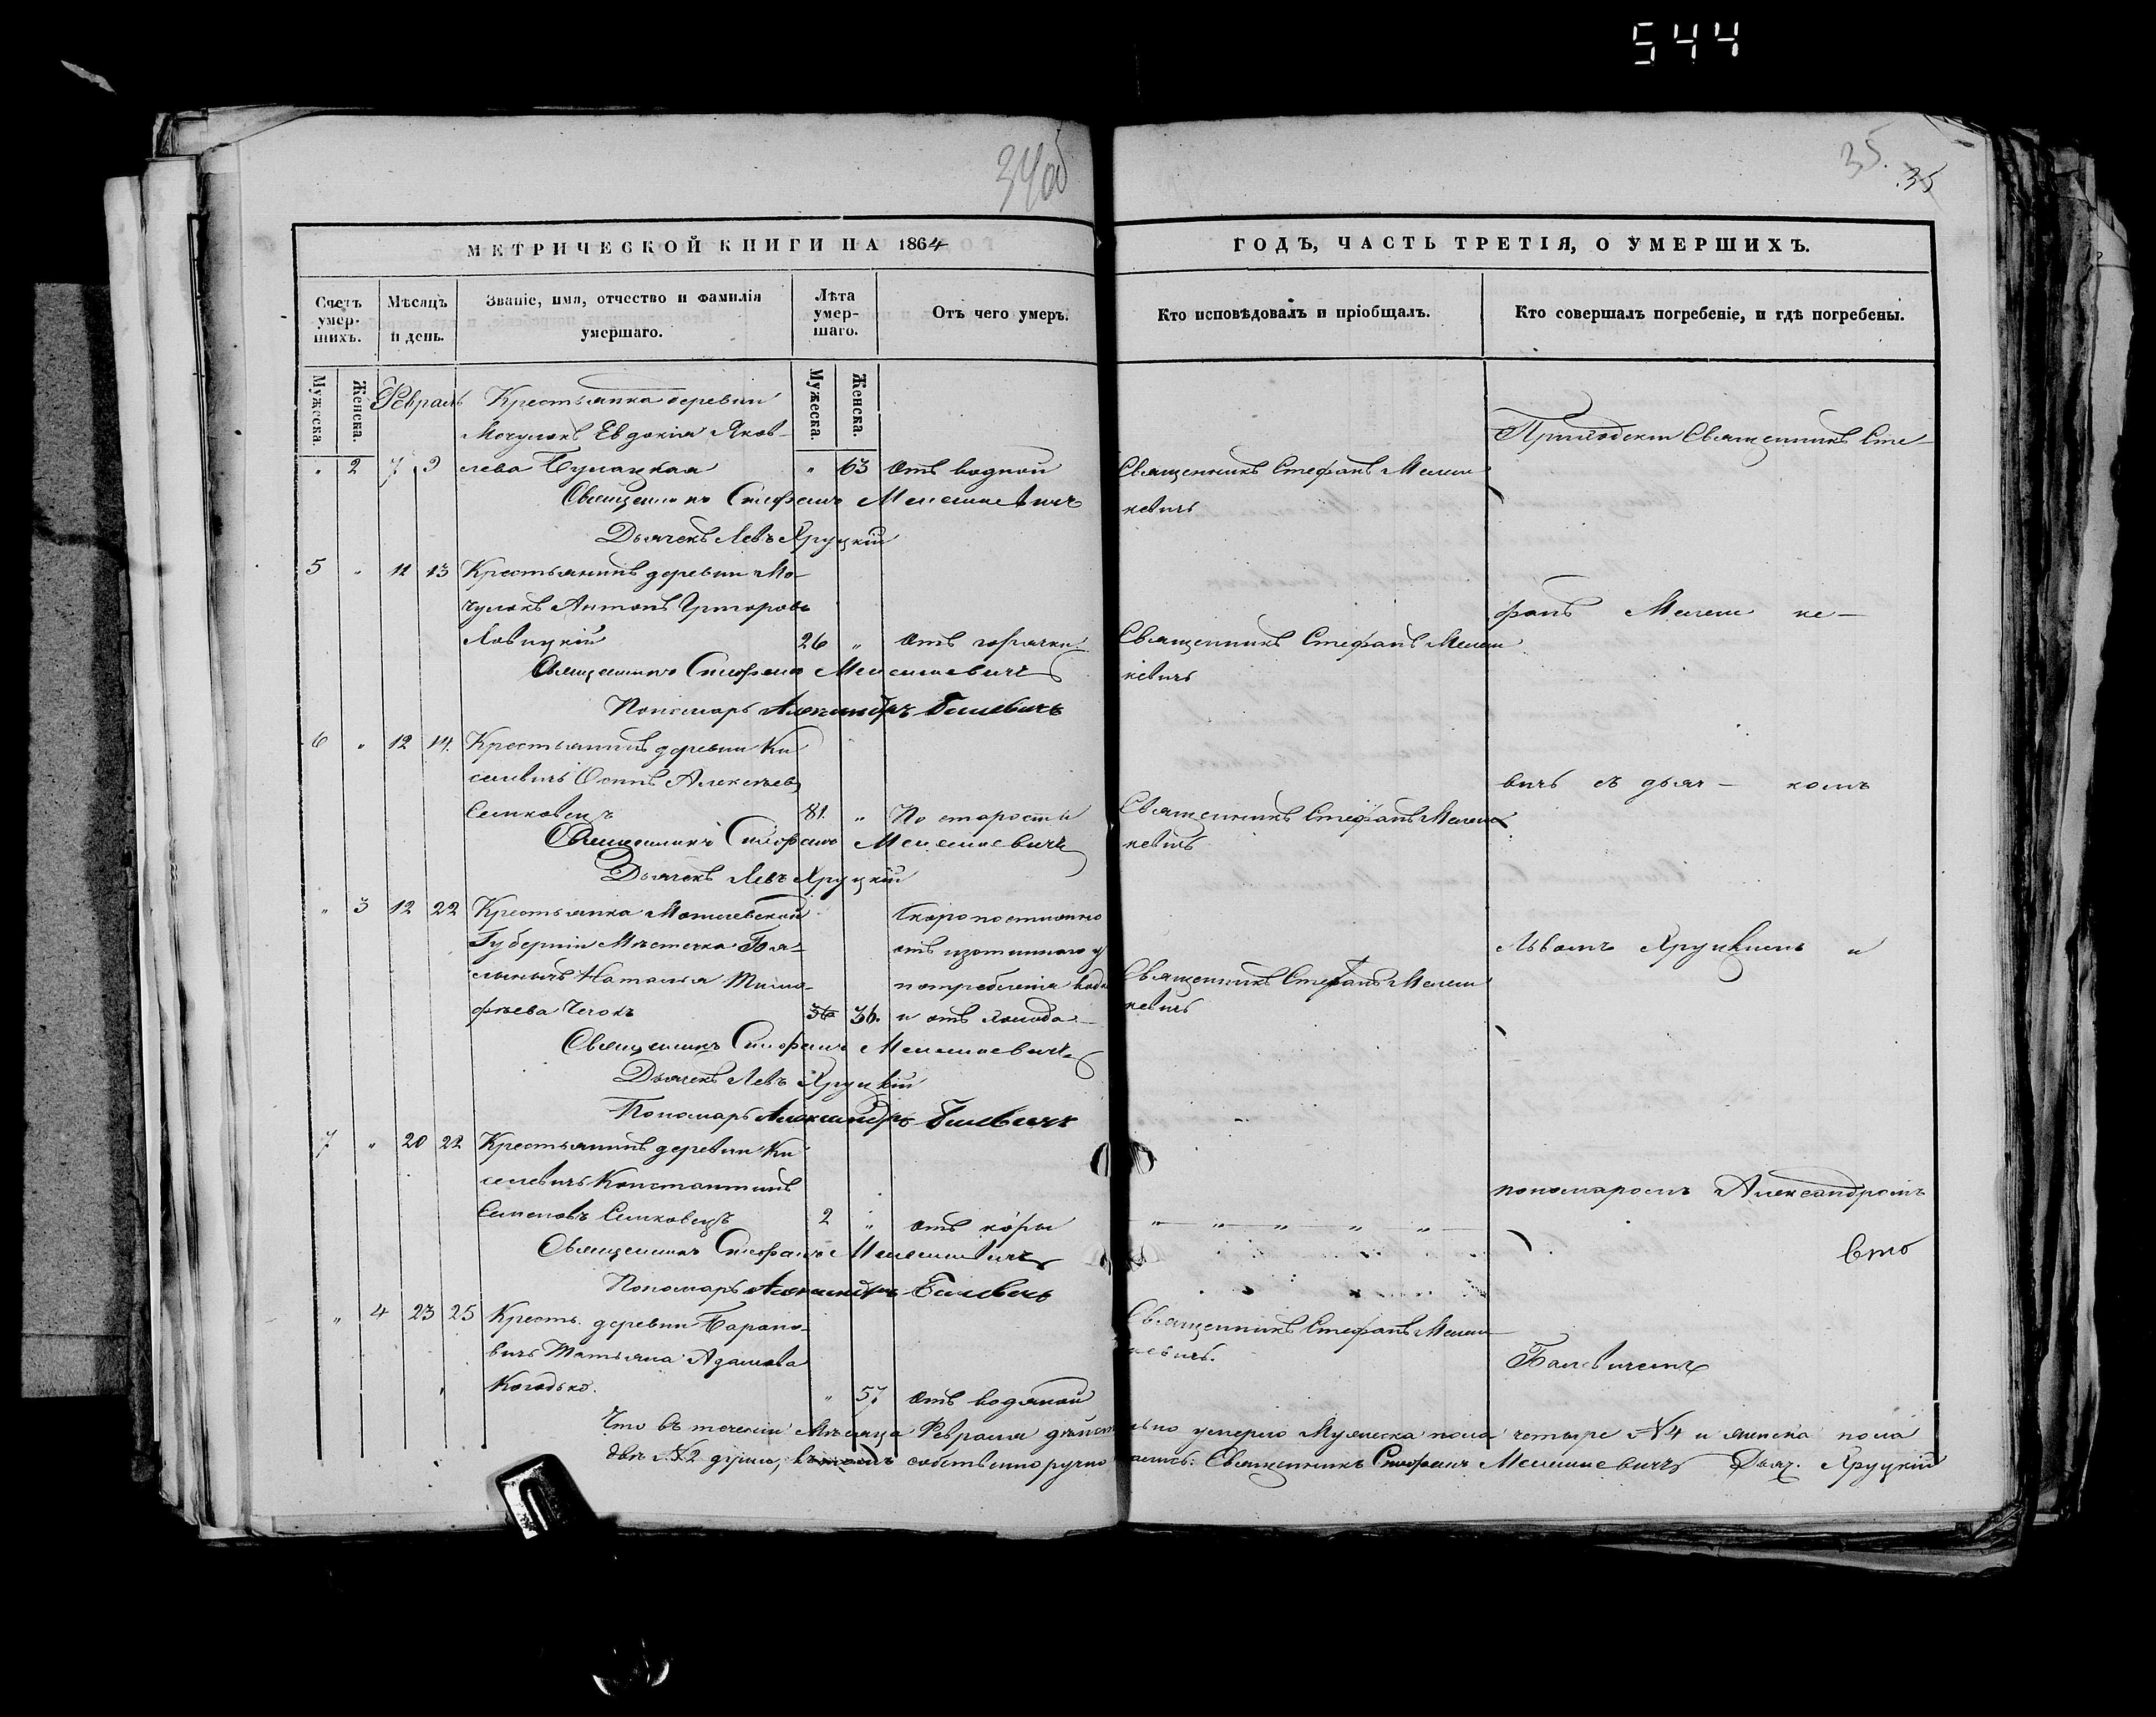 544
34об
35. 35
МЕТРИЧЕСКОЙ КНИГИ НА 1864
ГОДЪ, ЧАСТЬ ТРЕТІЯ, О УМЕРШИХЪ.
Счетъ умер-шихъ.
Мѣсяцъ и день.
Званіе, имя, отчество и фамилія умершаго.
Лѣта умер-шаго.
Отъ чего умеръ.
Кто исповѣдовалъ и пріобщалъ.
Кто совершалъ погребеніе, и гдѣ погребены.
Мужеска. Женска.
Мужеска. Женска.
Февраль Крестьянка деревни
Мочулокъ Евдокія Яков-
„ 2 7 9 лева „ 63 Отъ водной
Священникъ Стефанъ Мелеш
кевичъ
Священникъ Стефанъ Мелешкевичъ
Дьячекъ Левъ Хруцкій
5 „ 11 13 Крестьянинъ деревни Мо-
чулокъ Антонъ Григоровъ
26 „ Отъ горячки
Священникъ Стефанъ Мелеш
кевичъ
Священникъ Стефанъ Мелешкевичъ
Пономарь Александръ Балевичъ
6 „ 12 14 Крестьянинъ деревни Ки
селевичъ Осипъ Алексѣевъ
Сенковецъ 81. „ По старости
Священникъ Стефанъ Мелеш
кевичъ
Священникъ Стефанъ Мелешкевичъ
Дьячекъ Левъ Хруцкій
„ 3 12 22 Крестьянка Могилевской
Губерніи Мѣстечка Бѣ-
лыничъ Наталія Тимо-
фѣева 36 36. и отъ холода
Скоропостижно
отъ излишняго у
потребленія водки
Священникъ Стефанъ Мелеш
кевичъ
Священникъ Стефанъ Мелешкевичъ
Дьячекъ Левъ Хруцкій
Пономарь Александръ Балевичъ
7 „ 20 22 Крестьянинъ деревни Ки
селевичъ Константинъ
Семеновъ Сенковецъ 2 „ отъ кори
„ „ „ „ „
Священникъ Стефанъ Мелешкевичъ
Пономарь Александръ Балевичъ
„ 4 23 25 Кресть. деревни Барано-
вичъ Татьяна Адамова
Когодько. „ 57 Отъ водяной
Священникъ Стефанъ Мелеш
кевичъ.
Приходскій Священникъ Сте
фанъ Мелеш ке-
вичъ съ дьяч- комъ
Львомъ Хруцкимъ и
пономаромъ Александромъ
Балевичемъ
Что въ теченіи Мѣсяца Февраля дѣйствительно умерло Мужеска пола четыре №4 и женска пола
двѣ №2 души, въ томъ собственноручно Священникъ Стефанъ Мелешкевичъ Дьяч. Хруцкій